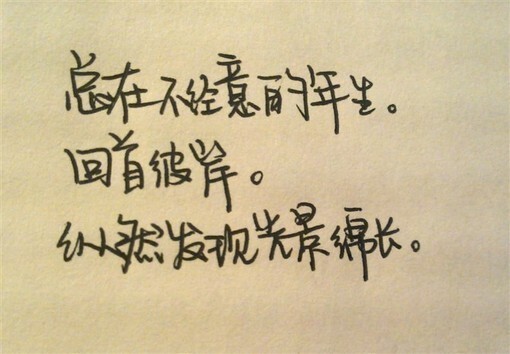 总在不经意的年生。
回首彼岸。
纵然发现光景绵长。